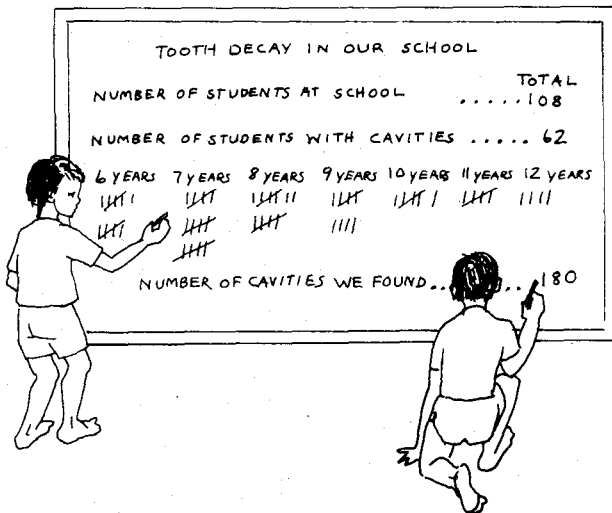 TOOTH DECAY IN OUR SCHOOL
TOTAL
NUMBER OF STUDENTS AT SCHOOL .....108
NUMBER OF STUDENTS WITH CAVITIES ..... 62
6 YEARS 7 YEARS 8 YEARS 9 YEARS 10 YEARS 11 YEARS 12 YEARS
NUMBER OF CAVITIES WE FOUND..... 180